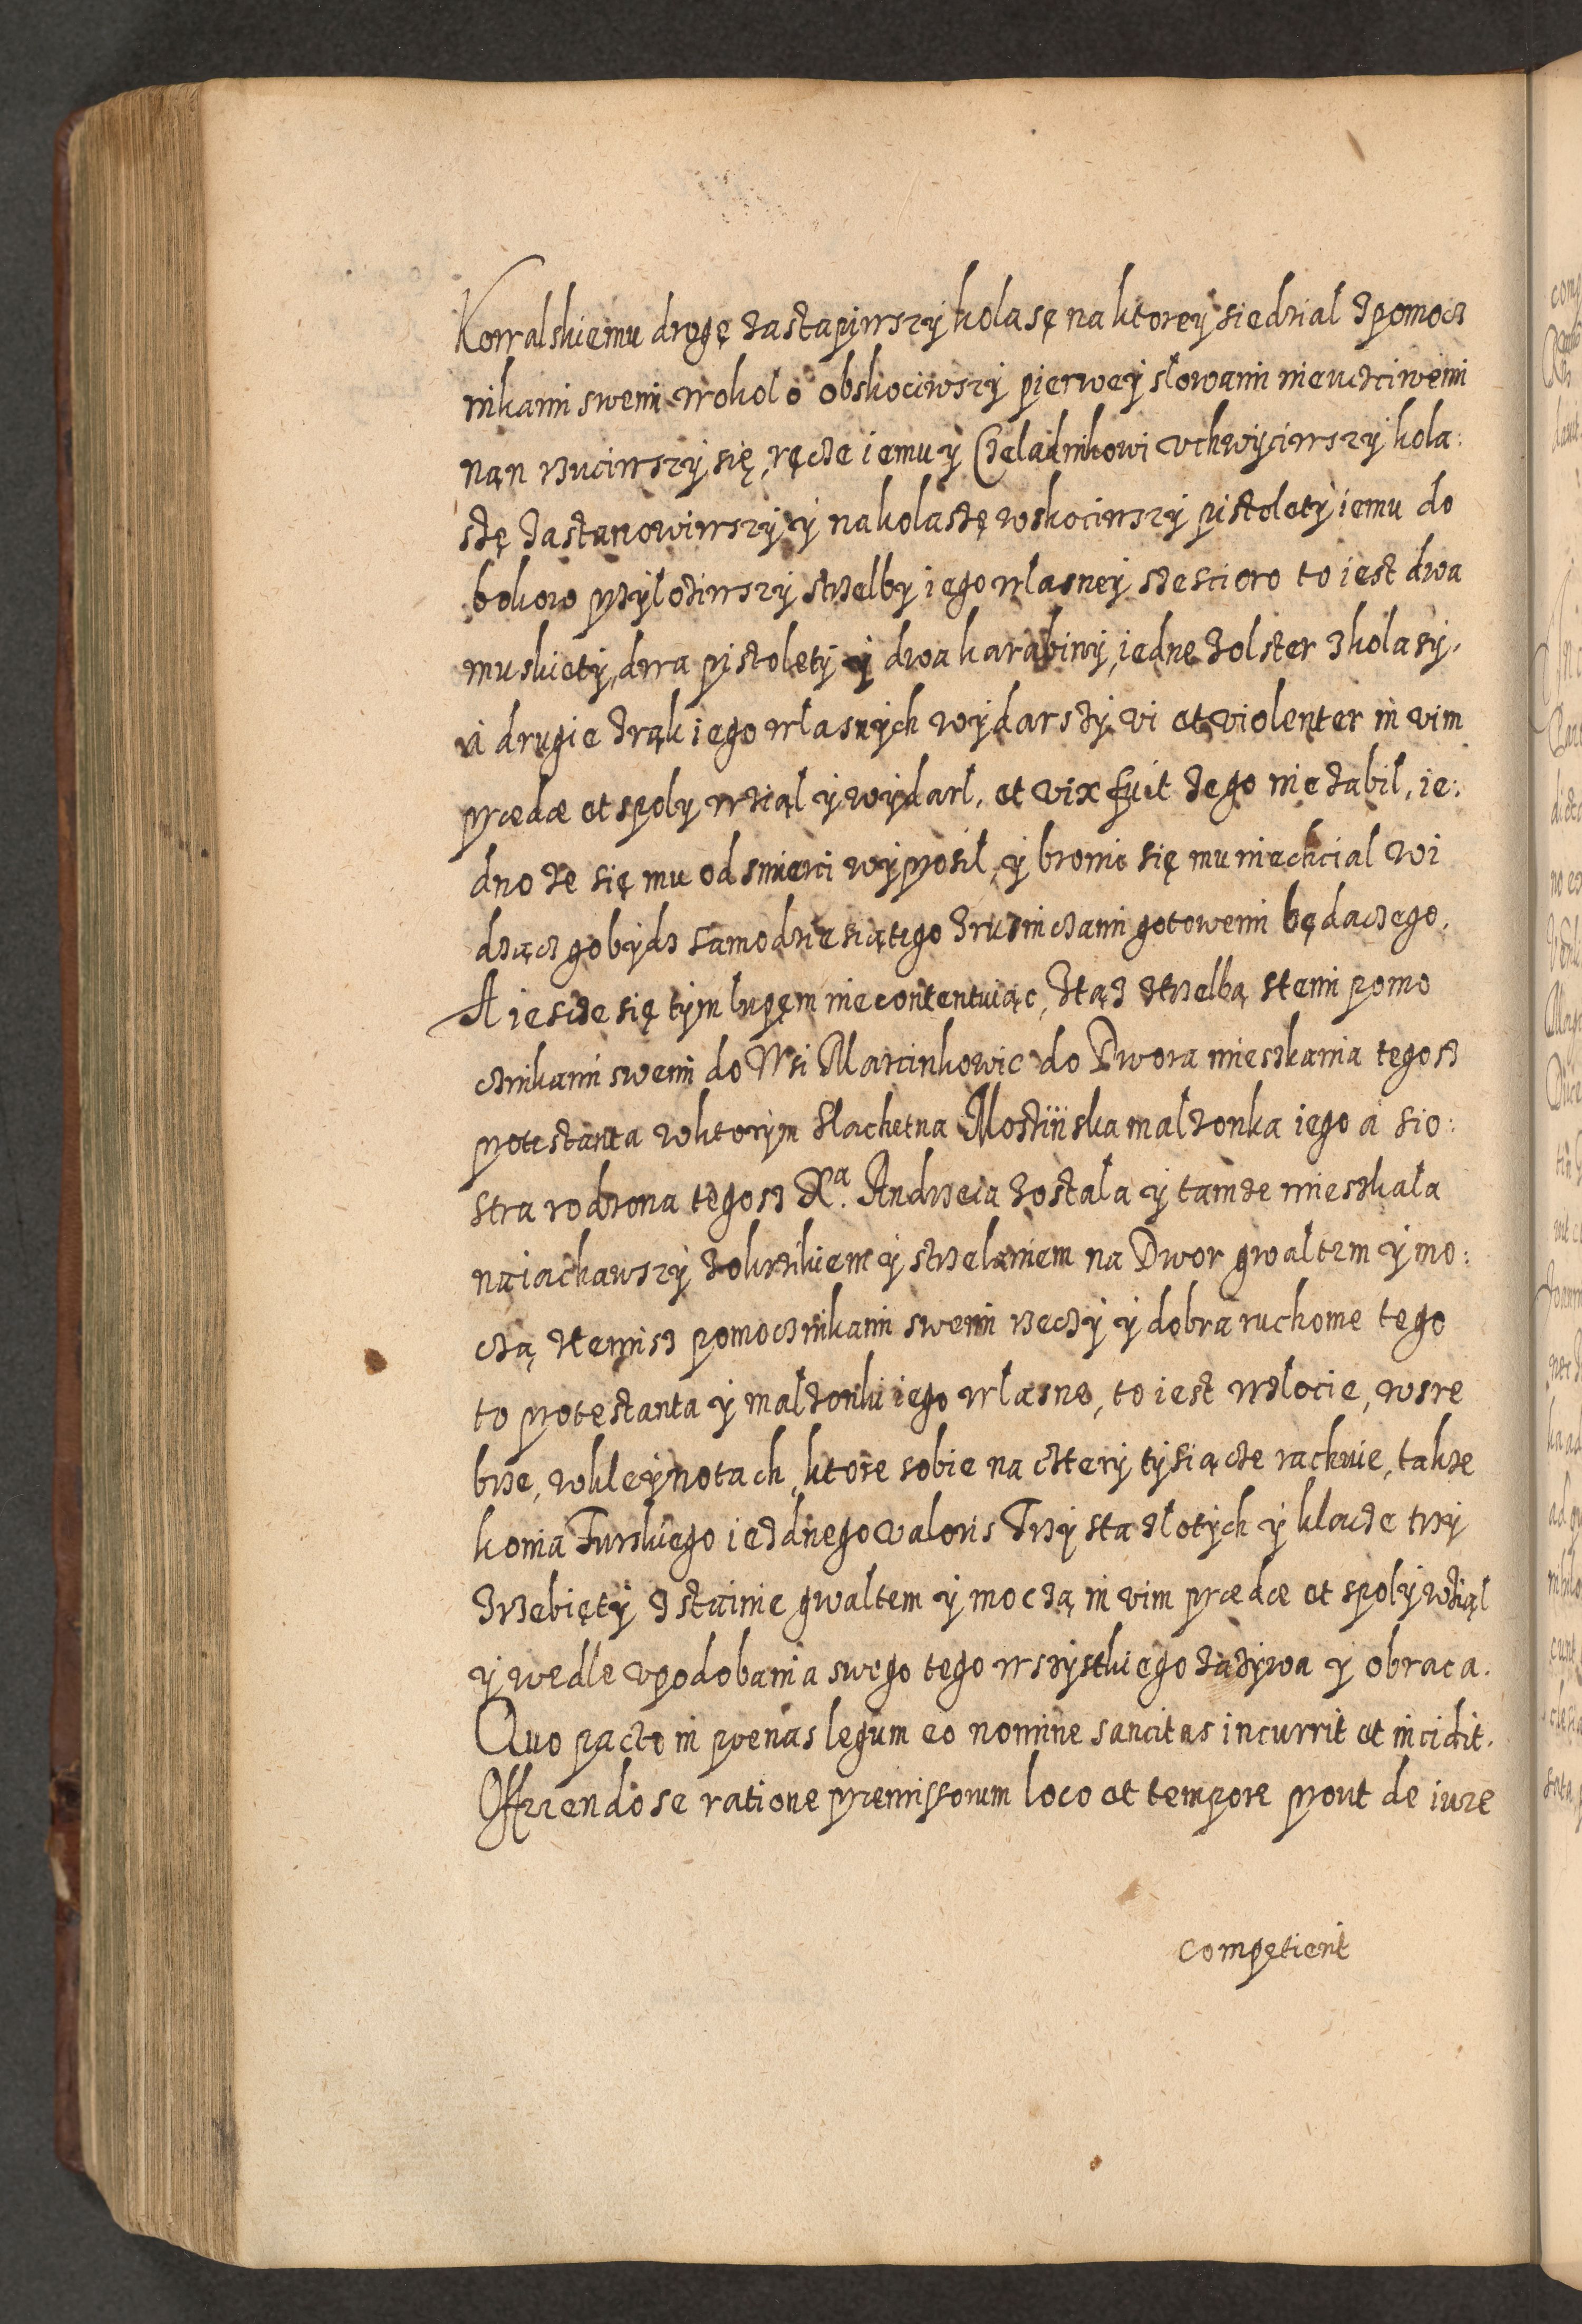 Kowalskiemu drogę zastąpiwszy kolasę na ktorey siedzial z pomocz
nikami swemi wokolo obskociwszy pierwey slowami nieuczciwemi
nąn rzuciwszy się, ręcze iemu y Czeladnikowi uchwyciwszy kola:
szę zastanowiwszy y na kolaszę wskociwszy pistolety iemu do
bokow przyłoziwszy strzelby iego wlasney szescioro to iest dwa
muskiety, dwa pistolety y dwa karabiny, iedne z olster z kolasy,
á drugie z rąk iego wlasnych wydarszy vi et violenter in vim
prædæ et spoly wziął y wydarl, et vix fuit ze go nie zabil, ie:
dno ze się mu od smierci wyprosił, y bronic się mu niechcial wi
dzącz go bydz samodziesiątego z rusniczami gotowemi będaczego.
A iescze się tym łupęm niecontentuiąc, ztąz strzelbą stemi pomo
cznikami swemi do Wsi Marcinkowic do Dwora mieszkania tegosz
protestanta w ktorym slachetna Mostiiska malzonka iego á sio:
stra rodzona tegosz Xa. Andrzeia zostala y tamze mieszkała
naiachawszy z okrzikiem y strzelaniem na Dwor gwaltem y mo:
czą, ztemisz pomocznikami swemi rzeczy y dobra ruchome tego
to protestanta y malzonki iego wlasne, to iest wzlocie, wsre
brze, w kleynotach, ktore sobie na cztery tysiącze rachuie, takze
konia Turskiego iezdnego valoris Trzysta złotych y klacze trzy
zrzebięty z stainie gwaltem y moczą, in vim prædæ et spoly wziął
y wedle upodobania swego tego wszystkiego zazywa y obraca.
Quo pacto in poenas legum eo nomine sancitas incurrit et incidit.
Offerendo se ratione præmissorum loco et tempore prout de iure
competierit